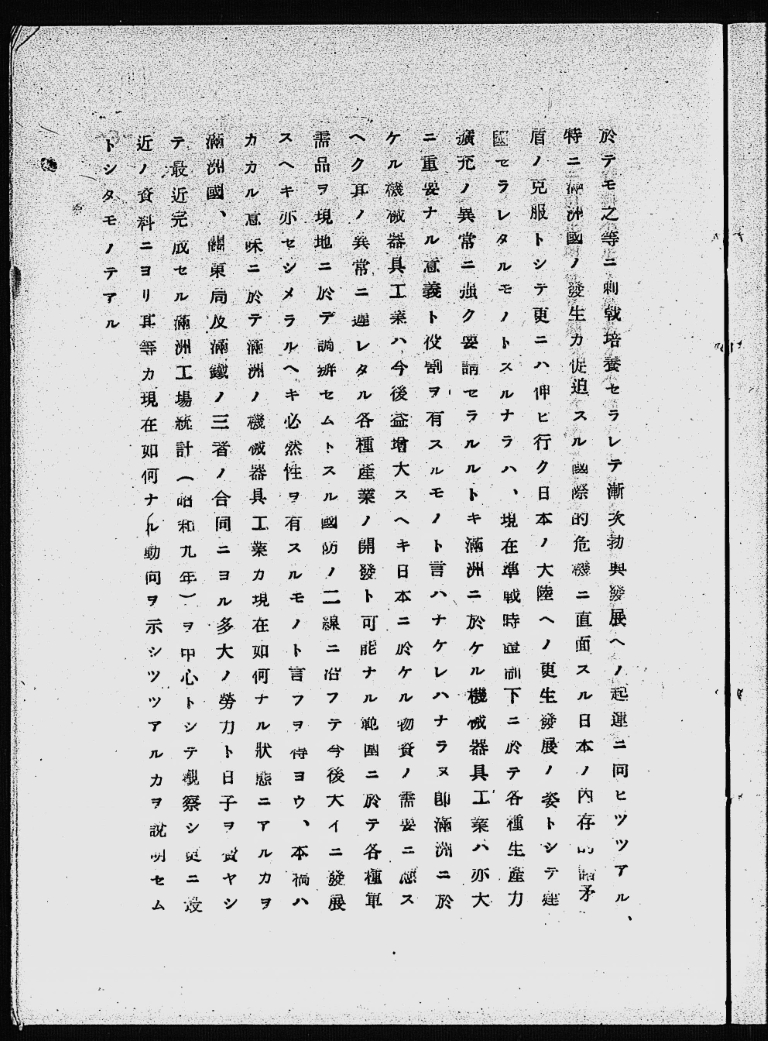 於テモ之等ニ刺戟培養セラレテ漸次勃興發展ヘノ起運ニ向ヒツツアル、
特ニ滿洲國ノ發生カ促迫スル國際的危機ニ直面スル日本ノ內存的諸矛
盾ノ克服トシテ更ニハ伸ヒ行ク日本ノ大陸ヘノ更生發展ノ姿トシテ建
國セラレタルモノトスルナラハ、現在準戰時體制下ニ於テ各種生產力
擴充ノ異常ニ强ク要請セラルルトキ滿洲ニ於ケル機械器具工業ハ亦大
ニ重要ナル意義ト役割ヲ有スルモノト言ハナケレハナラヌ卽滿洲ニ於
ケル機械器具工業ハ今後益增大スヘキ日本ニ於ケル物資ノ需要ニ應ス
ヘク其ノ異常ニ遲レタル各種產業ノ開發ト可能ナル範圍ニ於テ各種軍
需品ヲ現地ニ於テ調辨セムトスル國防ノ二線ニ沿フテ今後大イニ發展
スヘキ亦セシメラルヘキ必然性ヲ有スルモノト言フヲ得ヨウ、本稿ハ
カカル意味ニ於テ滿洲ノ機械器具工業カ現在如何ナル狀態ニアルカヲ
滿洲國、關東局及滿鐵ノ三者ノ合同ニヨル多大ノ勞力ト日子ヲ費ヤシ
テ最近完成セル滿洲工場統計（昭和九年）ヲ中心トシテ觀察シ更ニ最
近ノ資料ニヨリ其等カ現在如何ナル動向ヲ示シツツアルカヲ說明セム
トシタモノテアル